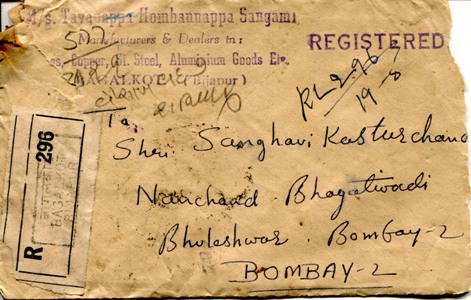 M/s. Tavanappa Hombannappa Sangami
Manufacturers & Dealers in:
Copper, St. Steel, Aluminium Goods Etc.
BAGALKOT (Bijapur)
REGISTERED
RL 296
19-8
To,
Shri Sanghavi Kasturchand
Nanchand. Bhagatwadi
Bhuleshwar. Bombay-2
BOMBAY-2
R 296